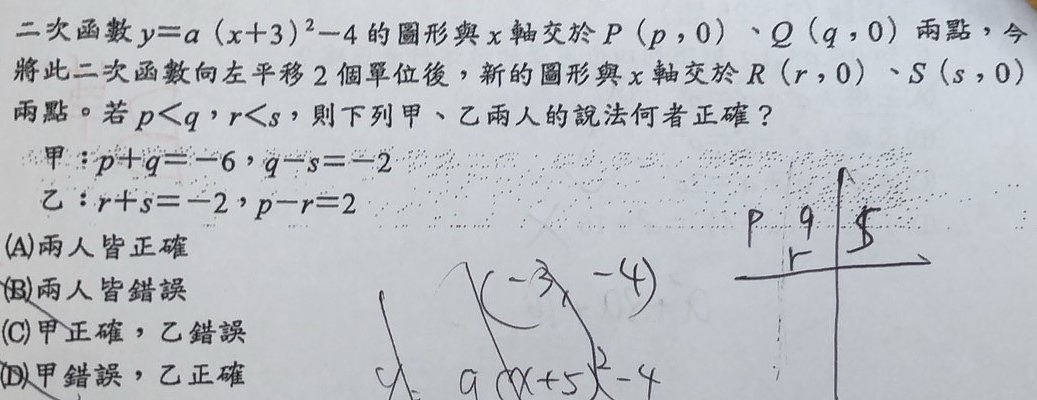 二次函數 y=a（x+3）²−4 的圖形與 x 軸交於 P（p，0）、Q（q，0）兩點，今
將此二次函數向左平移 2 個單位後，新的圖形與 x 軸交於 R（r，0）、S（s，0）
兩點。若 p<q，r<s，則下列甲、乙兩人的說法何者正確？
甲：p+q=−6，q−s=−2
乙：r+s=−2，p−r=2
(A)兩人皆正確
(B)兩人皆錯誤
(C)甲正確，乙錯誤
(D)甲錯誤，乙正確
p q S
r
(-3, -4)
y= a(x+5)²-4